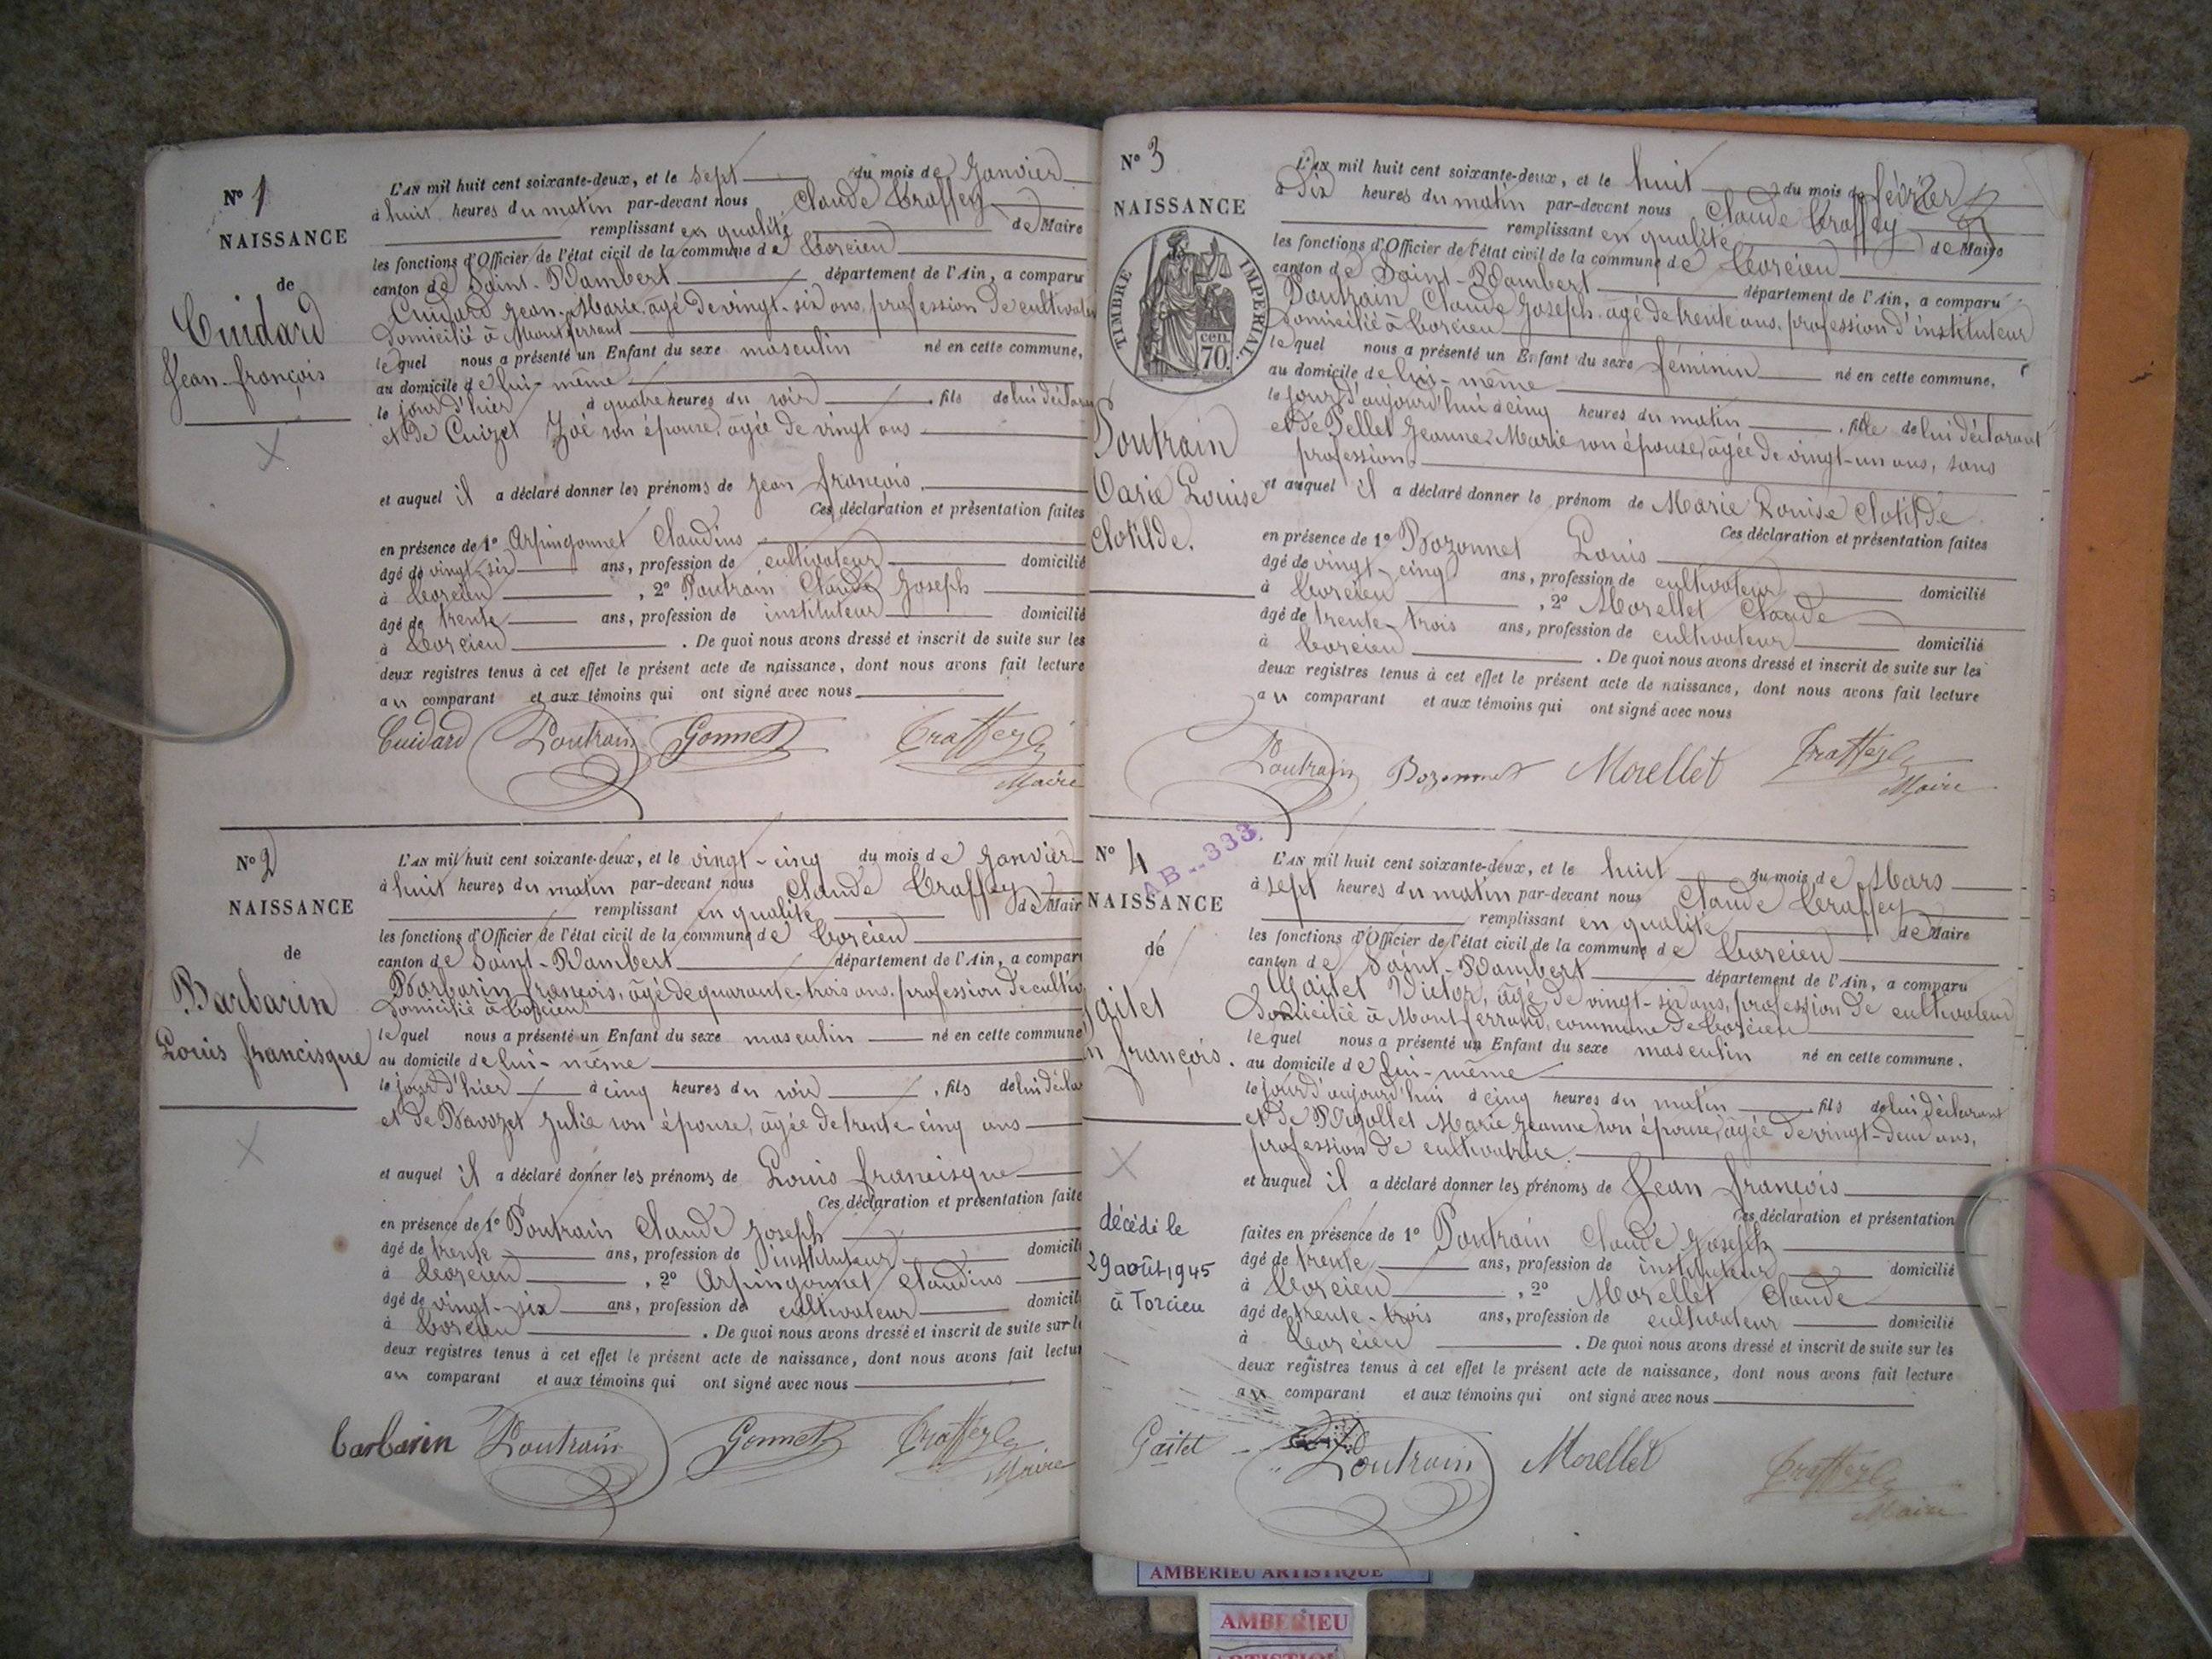 N° 1
NAISSANCE
de
Cuidard
Jean-françois
L'AN mil huit cent soixante-deux, et le sept du mois de Janvier
à huit heures du matin par-devant nous Claude Traffey
remplissant en qualité de Maire
les fonctions d'Officier de l'état civil de la commune de Torcieu
canton de Saint-Rambert département de l'Ain, a comparu
Cuidard Jean-Marie, âgé de vingt-six ans, profession de cultivateur
domicilié à Montferrant
lequel nous a présenté un Enfant du sexe masculin né en cette commune,
au domicile de lui-même
le jour d'hier à quatre heures du soir , fils de lui déclarant
et de Cuizet Zoé son épouse, âgée de vingt ans
et auquel il a déclaré donner les prénoms de Jean françois
Ces déclaration et présentation faites
en présence de 1° Arpingonnet Claudius
âgé de vingt-six ans, profession de cultivateur domicilié
à Torcieu , 2° Poutrain Claude Joseph
âgé de trente ans, profession de instituteur domicilié
à Torcieu . De quoi nous avons dressé et inscrit de suite sur les
deux registres tenus à cet effet le présent acte de naissance, dont nous avons fait lecture
au comparant et aux témoins qui ont signé avec nous
Cuidard Poutrain Gonnet Traffey
Maire
N° 2
NAISSANCE
de
Barbarin
Louis francisque
L'AN mil huit cent soixante-deux, et le vingt-cinq du mois de Janvier
à huit heures du matin par-devant nous Claude Traffey
remplissant en qualité de Mair
les fonctions d'Officier de l'état civil de la commune de Torcieu
canton de Saint-Rambert département de l'Ain, a compar
Barbarin françois, âgé de quarante-trois ans, profession de cultiv
domicilié à Torcieu
lequel nous a présenté un Enfant du sexe masculin né en cette commune
au domicile de lui-même
le jour d'hier à cinq heures du soir , fils de lui décla
et de Julie son épouse, âgée de trente-cinq ans
et auquel il a déclaré donner les prénoms de Louis francisque
Ces déclaration et présentation faite
en présence de 1° Poutrain Claude Joseph
âgé de trente ans, profession de instituteur domicili
à Torcieu , 2° Arpingonnet Claudius
âgé de vingt-six ans, profession de cultivateur domicili
à Torcieu . De quoi nous avons dressé et inscrit de suite sur le
deux registres tenus à cet effet le présent acte de naissance, dont nous avons fait lectur
au comparant et aux témoins qui ont signé avec nous
barbarin Poutrain Gonnet Traffey
Maire
N° 3
NAISSANCE
TIMBRE IMPERIAL
70 cen.
Poutrain
Marie Louise
Clotilde.
L'AN mil huit cent soixante-deux, et le huit du mois de février
à dix heures du matin par-devant nous Claude Traffey
remplissant en qualité de Maire
les fonctions d'Officier de l'état civil de la commune de Torcieu
canton de Saint-Rambert département de l'Ain, a comparu
Poutrain Claude Joseph, âgé de trente ans, profession d'instituteur
domicilié à Torcieu
lequel nous a présenté un Enfant du sexe féminin né en cette commune,
au domicile de lui-même
le jour d'aujourd'hui à cinq heures du matin , fille de lui déclarant
et de Pellet Jeanne-Marie son épouse, âgée de vingt-un ans, sans
profession.
et auquel il a déclaré donner le prénom de Marie Louise Clotilde
Ces déclaration et présentation faites
en présence de 1° Bozonnet Louis
âgé de vingt-cinq ans, profession de cultivateur domicilié
à Torcieu , 2° Morellet Claude
âgé de trente-trois ans, profession de cultivateur domicilié
à Torcieu . De quoi nous avons dressé et inscrit de suite sur les
deux registres tenus à cet effet le présent acte de naissance, dont nous avons fait lecture
au comparant et aux témoins qui ont signé avec nous
Poutrain Bozonnet Morellet Traffey
Maire
N° 4
AB--333.
NAISSANCE
de
Gaitet
n françois.
L'AN mil huit cent soixante-deux, et le huit du mois de Mars
à sept heures du matin par-devant nous Claude Traffey
remplissant en qualité de Maire
les fonctions d'Officier de l'état civil de la commune de Torcieu
canton de Saint-Rambert département de l'Ain, a comparu
Gaitet Victor, âgé de vingt-six ans, profession de cultivateur
domicilié à Montferrand, commune de Torcieu
lequel nous a présenté un Enfant du sexe masculin né en cette commune.
au domicile de lui-même
le jour d'aujourd'hui à cinq heures du matin fils de lui déclarant
et de Rigollet Marie Jeanne son épouse, âgée de vingt-deux ans,
profession de cultivatrice.
et auquel il a déclaré donner les prénoms de Jean françois
Ces déclaration et présentation
faites en présence de 1° Poutrain Claude Joseph
âgé de trente ans, profession de instituteur domicilié
à Torcieu , 2° Morellet Claude
âgé de trente-trois ans, profession de cultivateur domicilié
à Torcieu . De quoi nous avons dressé et inscrit de suite sur les
deux registres tenus à cet effet le présent acte de naissance, dont nous avons fait lecture
au comparant et aux témoins qui ont signé avec nous
décédé le
29 août 1945
à Torcieu
Gaitet Poutrain Morellet Traffey
Maire
AMBERIEU ARTISTIQUE
AMBERIEU
ARTISTIQUE